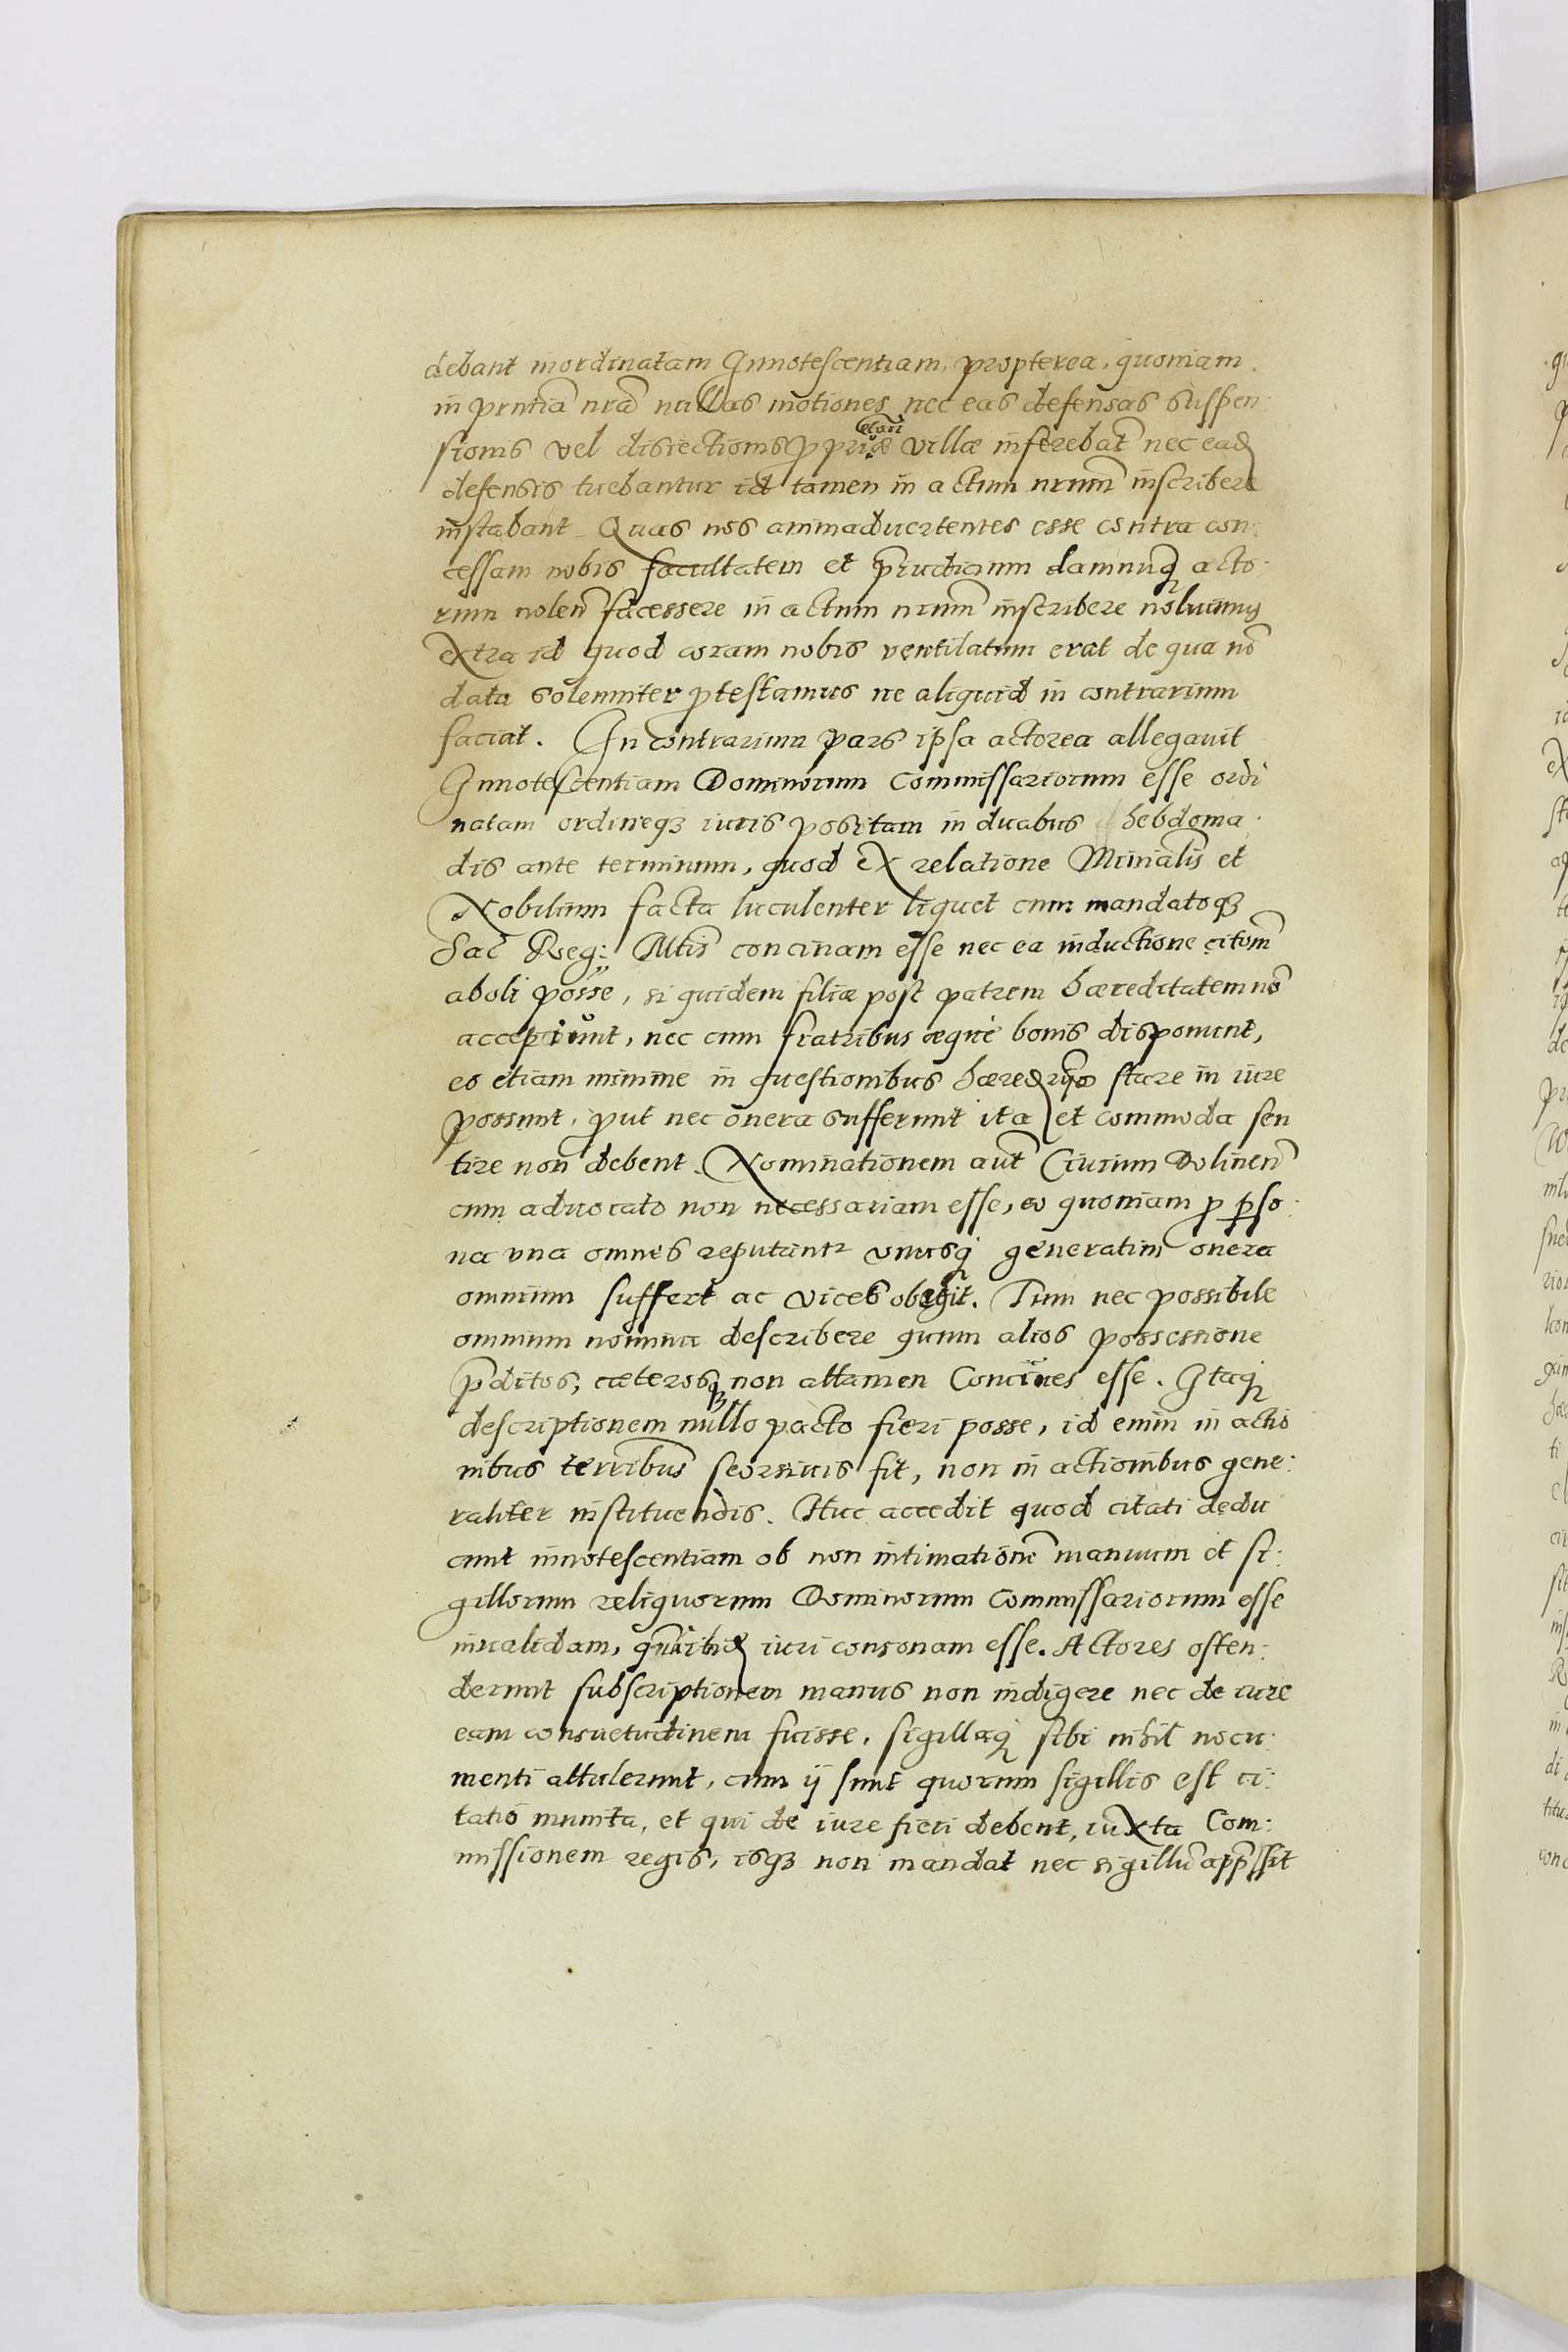 debant inordinatam Innotescentiam, propterea, quoniam
in prntia nra nullas motiones nec eas defensas suspen:
sionis vel disiectionis ppriæ villæ inferebat nec ead
defensis tuebantur id tamen in actum nrum inscribere
instabant. Quas nos animaduertentes esse contra con:
cessam nobis facultatem et priudicium damnuq acto:
rum nolen facessere in actum nrum inscribere noluimus
extra id quod coram nobis ventilatum erat de qua no
data solenniter ptestamus ne aliquid in contrarium
faciat. In contrarium pars ipsa actorea allegauit
Innotescentiam Dominorum Commissariorum esse ordi
natam ordineq3 iuris positam in duabus hebdoma:
dis ante terminum, quod ex relatione Minialis et
Nobilium facta luculenter liquet cum mandatoq3
Sac Reg: Mtis concinam esse nec ea inductione citom
aboli posse, si quidem filiæ post patrem hæreditatem no
accepiunt, nec cum fratribus æque bonis disponunt,
eo etiam minime in questionibus stare in iure
possunt, put nec onera sufferunt ita et commoda sen
tire non debent. Nominationem aut Ciuium Dolinen
cum aduocato non necessariam esse, eo quoniam p pso:
na vna omnes reputantr vnusq generatim onera
omnium suffert ac vices obegit. Tum nec possibile
omnium nomina describere quum alios possessione
pditos, cæterosq non attamen Conciues esse. Itaq
descriptionem nullo pacto fieri posse, id enim in actio
nibus terribus seorsiuis fit, non in actionibus gene:
raliter instituendis. Huc accedit quod citati dedu
cunt innotescentiam ob non intimatione manuum et si:
gillorum reliquorum Dominorum Commissariorum esse
inualidam, iuri consonam esse. Actores osten:
derunt subscriptionem manus non indigere nec de iure
eam consuetudinem fuisse, sigillaq sibi nihil nocu:
menti attulerunt, cum ij sunt quorum sigillis est ci:
tatio munita, et qui de iure fieri debent, iuxta Com:
missionem regis, isq3 non mandat nec sigillu apprssit